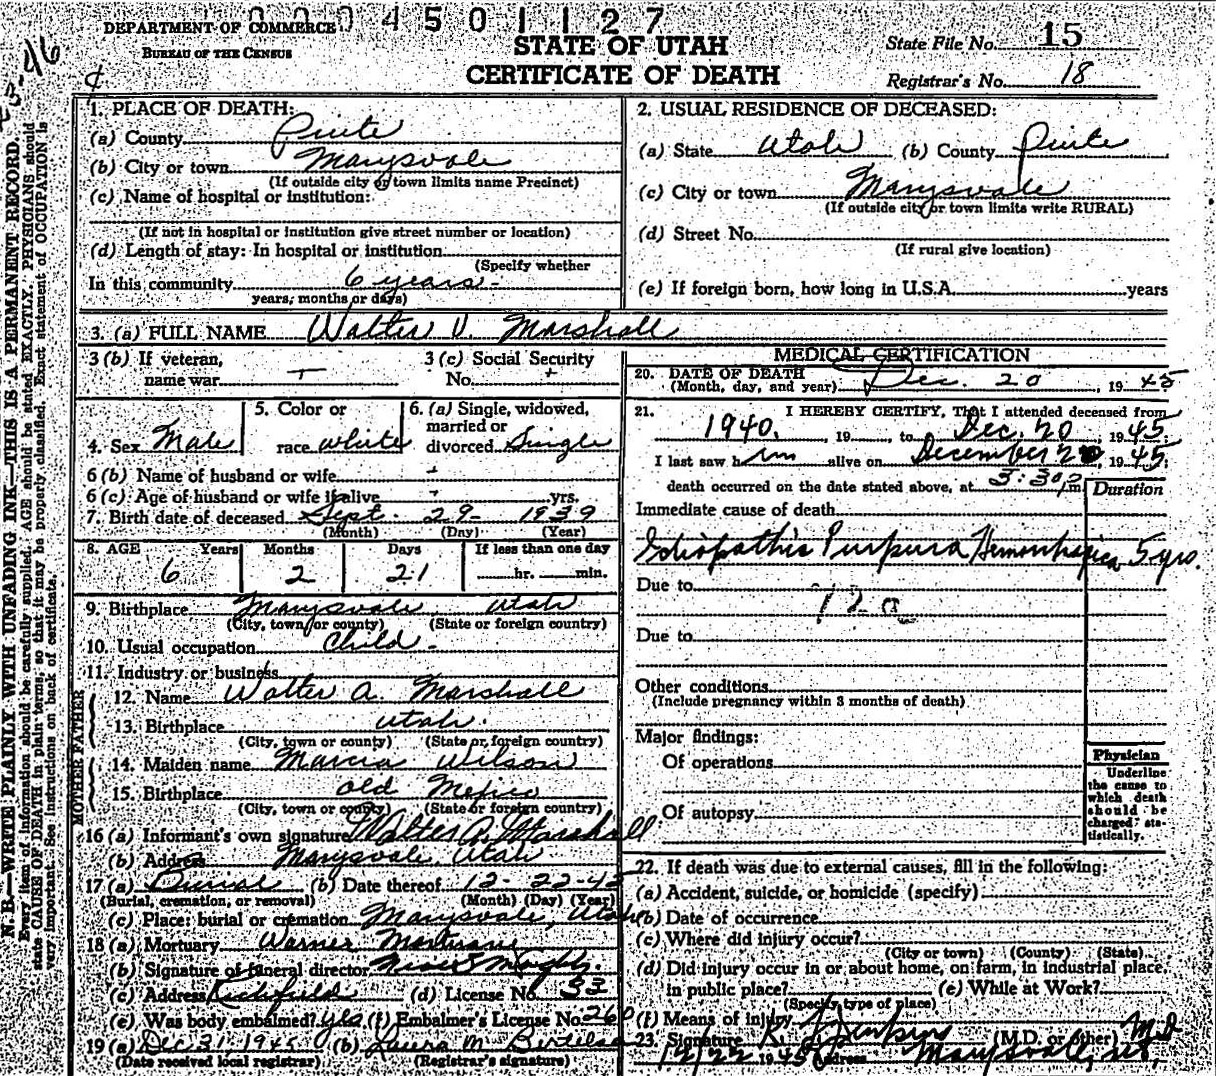 0004501127
DEPARTMENT OF COMMERCE
BUREAU OF THE CENSUS
STATE OF UTAH
CERTIFICATE OF DEATH
State File No. 15
Registrar's No. 18
N. B.—WRITE PLAINLY WITH UNFADING INK—THIS IS A PERMANENT RECORD.
Every item of information should be carefully supplied. AGE should be stated EXACTLY. PHYSICIANS should
state CAUSE OF DEATH in plain terms, so that it may be properly classified. Exact statement of OCCUPATION is
very important. See instructions on back of certificate.
1. PLACE OF DEATH:
(a) County Piute
(b) City or town Marysvale
(If outside city or town limits name Precinct)
(c) Name of hospital or institution:
(If not in hospital or institution give street number or location)
(d) Length of stay: In hospital or institution
(Specify whether
In this community 6 years -
years, months or days)
2. USUAL RESIDENCE OF DECEASED:
(a) State Utah (b) County Piute
(c) City or town Marysvale
(If outside city or town limits write RURAL)
(d) Street No.
(If rural give location)
(e) If foreign born, how long in U.S.A. years
3. (a) FULL NAME Walter V. Marshall
3 (b) If veteran,
name war
3 (c) Social Security
No.
4. Sex Male
5. Color or
race white
6. (a) Single, widowed,
married or
divorced Single
6 (b) Name of husband or wife
6 (c) Age of husband or wife if alive yrs.
7. Birth date of deceased Sept. 29 - 1939
(Month) (Day) (Year)
8. AGE Years Months Days If less than one day
6 2 21 hr. min.
9. Birthplace Marysvale, Utah
(City, town or county) (State or foreign country)
10. Usual occupation Child -
11. Industry or business
FATHER
12. Name Walter A. Marshall
13. Birthplace Utah.
(City, town or county) (State or foreign country)
MOTHER
14. Maiden name Marcia Wilson
15. Birthplace Old Mejico
(City, town or county) (State or foreign country)
16 (a) Informant's own signature Walter A. Marshall
(b) Address Marysvale, Utah
17 (a) Burial (b) Date thereof 12-22-45
(Burial, cremation, or removal) (Month) (Day) (Year)
(c) Place: burial or cremation Marysvale, Utah
18 (a) Mortuary Warner Mortuary
(b) Signature of funeral director
(c) Address Richfield (d) License No. 33
(e) Was body embalmed? yes (f) Embalmer's License No. 260
19 (a) Dec 31-1945 (b) Laura M. Bertelsen
(Date received local registrar) (Registrar's signature)
MEDICAL CERTIFICATION
20. DATE OF DEATH
(Month, day, and year) Dec. 20, 1945
21. I HEREBY CERTIFY, That I attended deceased from
1940, 19 to Dec. 20 1945
I last saw him alive on December 20, 1945
death occurred on the date stated above, at 3:30 P m.
Duration
Immediate cause of death
Idiopathic Purpura Hemorrhagica 5 yrs.
Due to
Due to
Other conditions
(Include pregnancy within 3 months of death)
Major findings:
Of operations
Of autopsy
Physician
Underline
the cause to
which death
should be
charged statistically.
22. If death was due to external causes, fill in the following:
(a) Accident, suicide, or homicide (specify)
(b) Date of occurrence
(c) Where did injury occur?
(City or town) (County) (State)
(d) Did injury occur in or about home, on farm, in industrial place,
in public place? (e) While at Work?
(Specify type of place)
(f) Means of injury
23. Signature Jenkins (M.D. or other) M.D
12/22 1945 Address Marysvale, Ut.